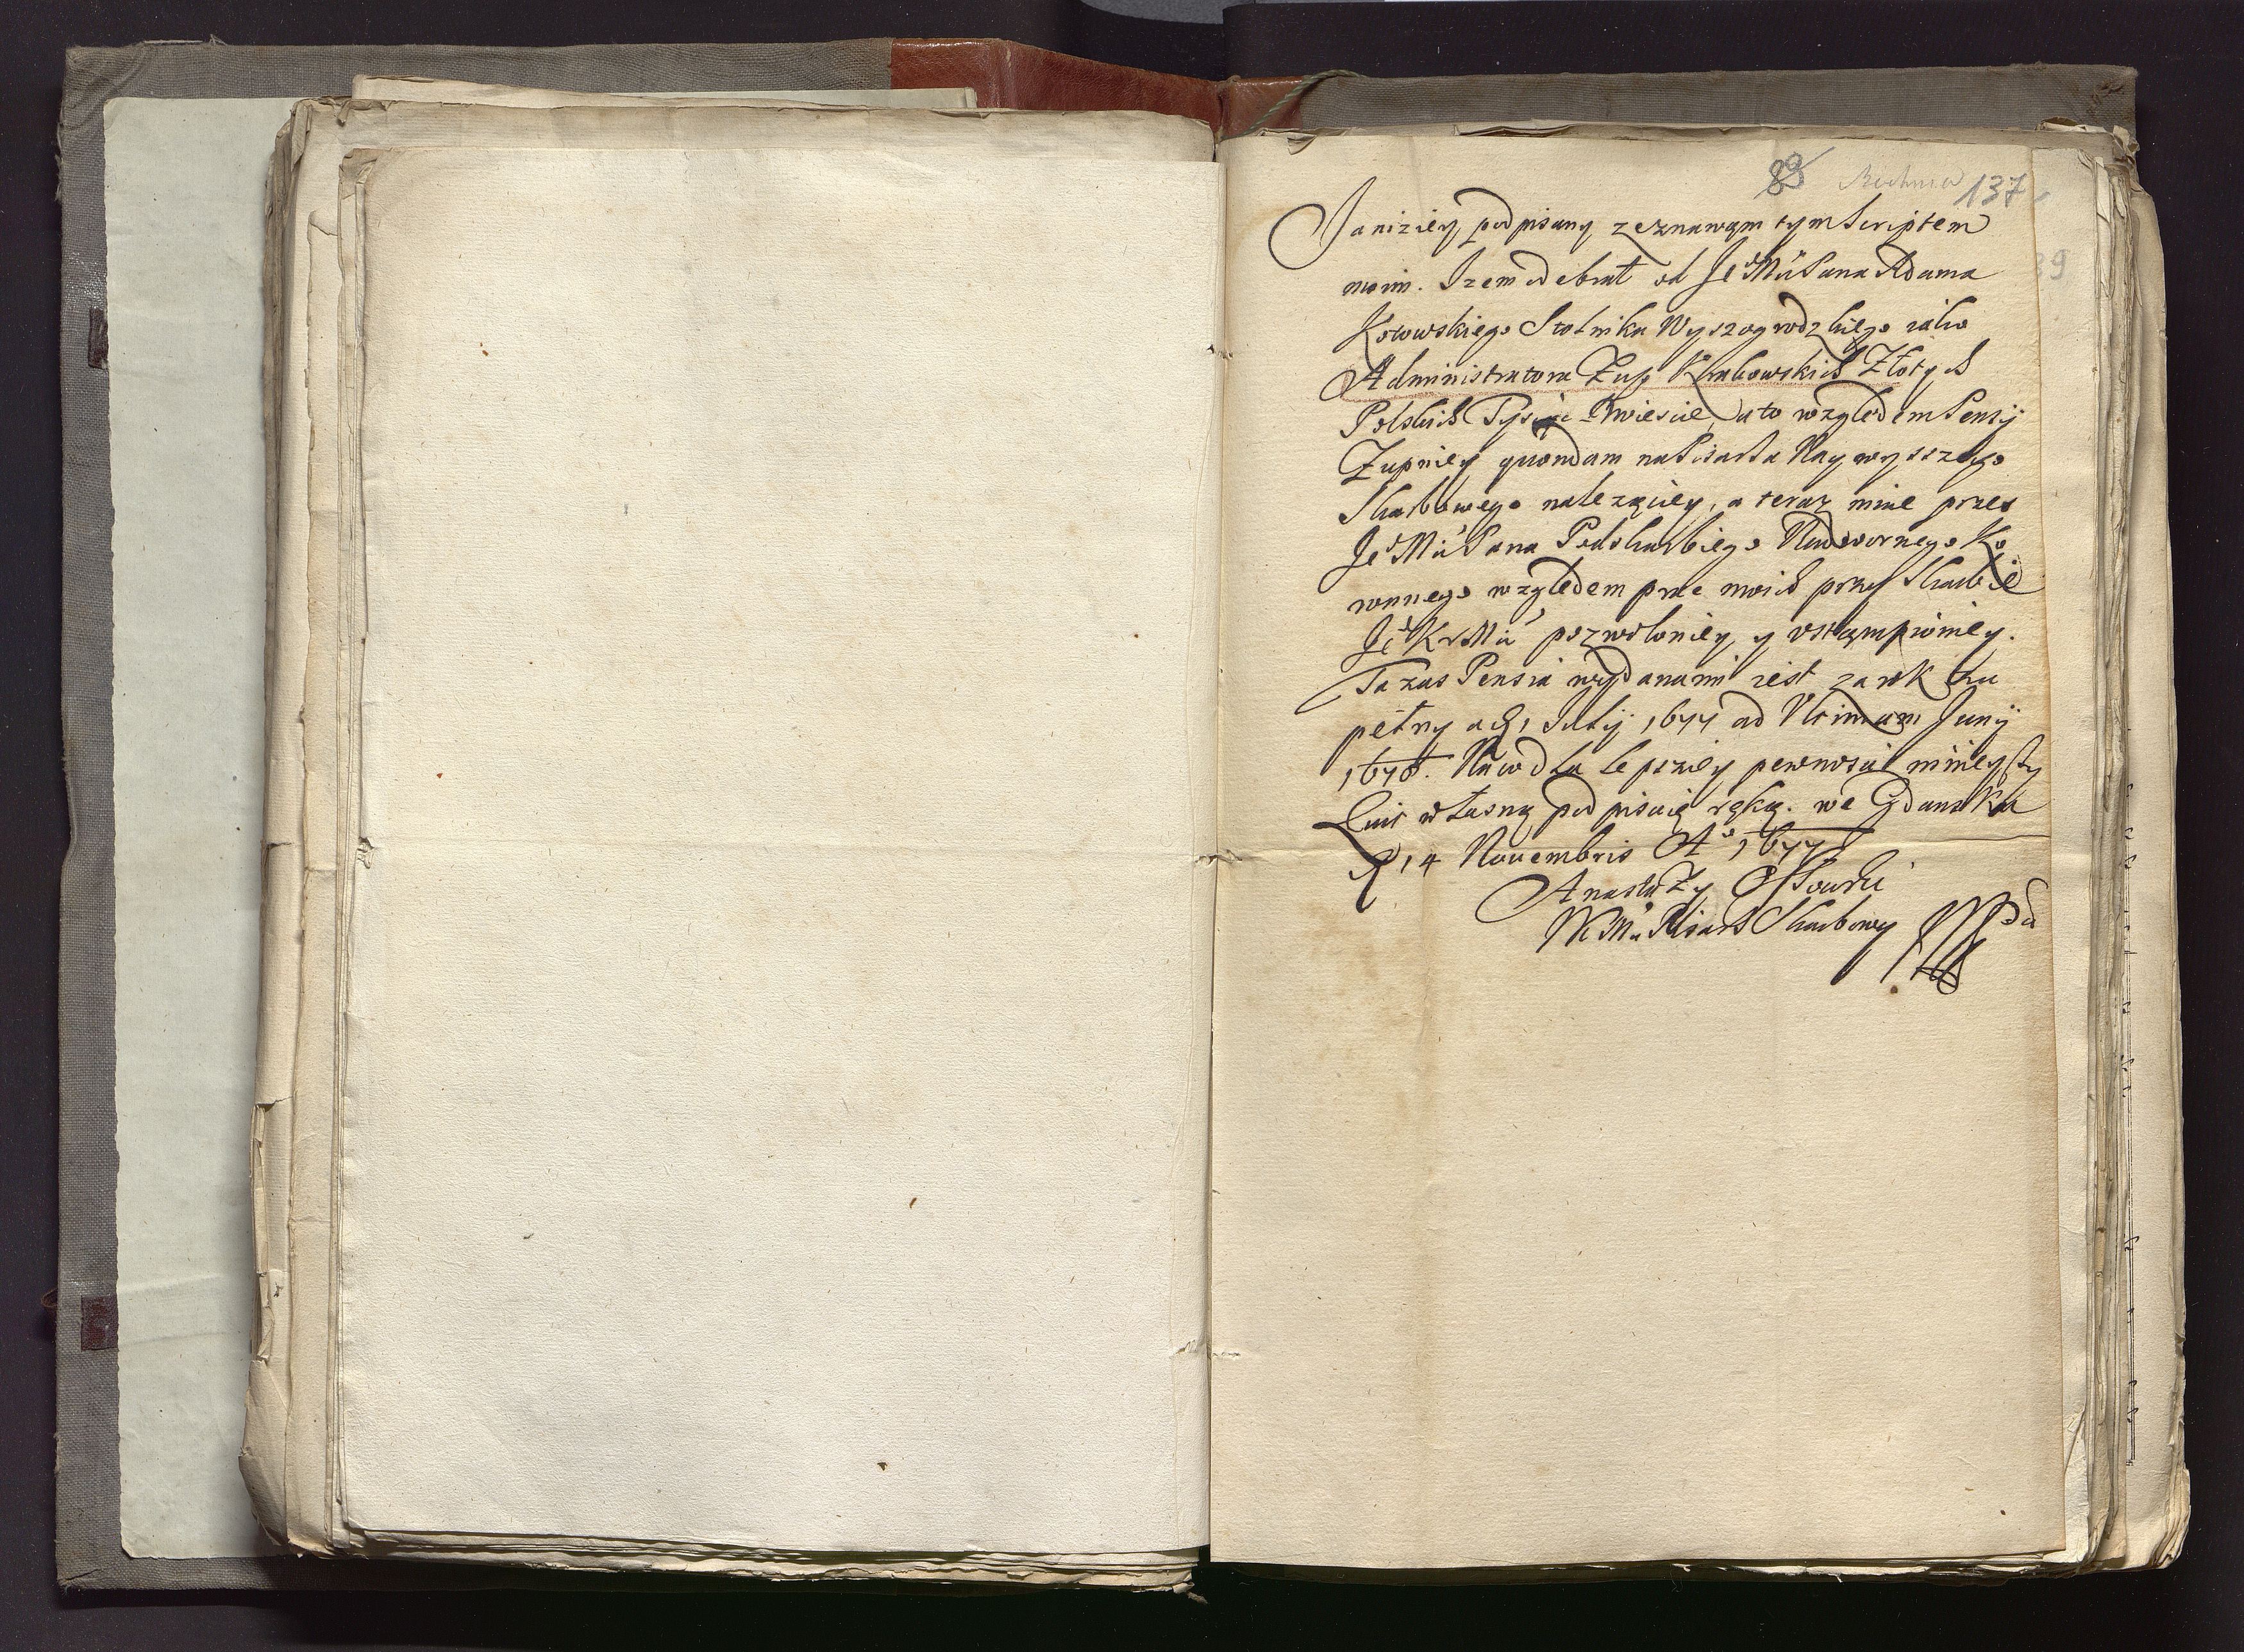 89 Bochnia 137
39
Ja niziey podpisany zeznawąm tym Scriptem
moim. Izem odebrał od Je° Mći Pana Adama
Kotowskiego Stolnika Wyszogrodzkiego iako
Administratora Zup Krakowskich Złotych
Polskich Tysiąc Dwiescie, a to względem Pensij
Zupniey quondam na Pisarza Naywyszszego
Skarbowego nalezącey, a teraz mnie przez
Je° Mći Pana Podskarbiego Nadwornego Ko
ronnego względem prac moich przy Skarbie
Je° Kr Mći pozwoloney y vstąmpioney.
Ta zas Pensia wydana mi iest za rok zu
pełny a d. 1 Julij 1677 ad Vltimam Junij
1678. Na co dla lepszey pewnosci ninieyszy
Quit własną podpisuię ręką. we Gdansku
d 14 Nouembris A° 1677
Anastazy
J K Mći Pisarz Skarbowy